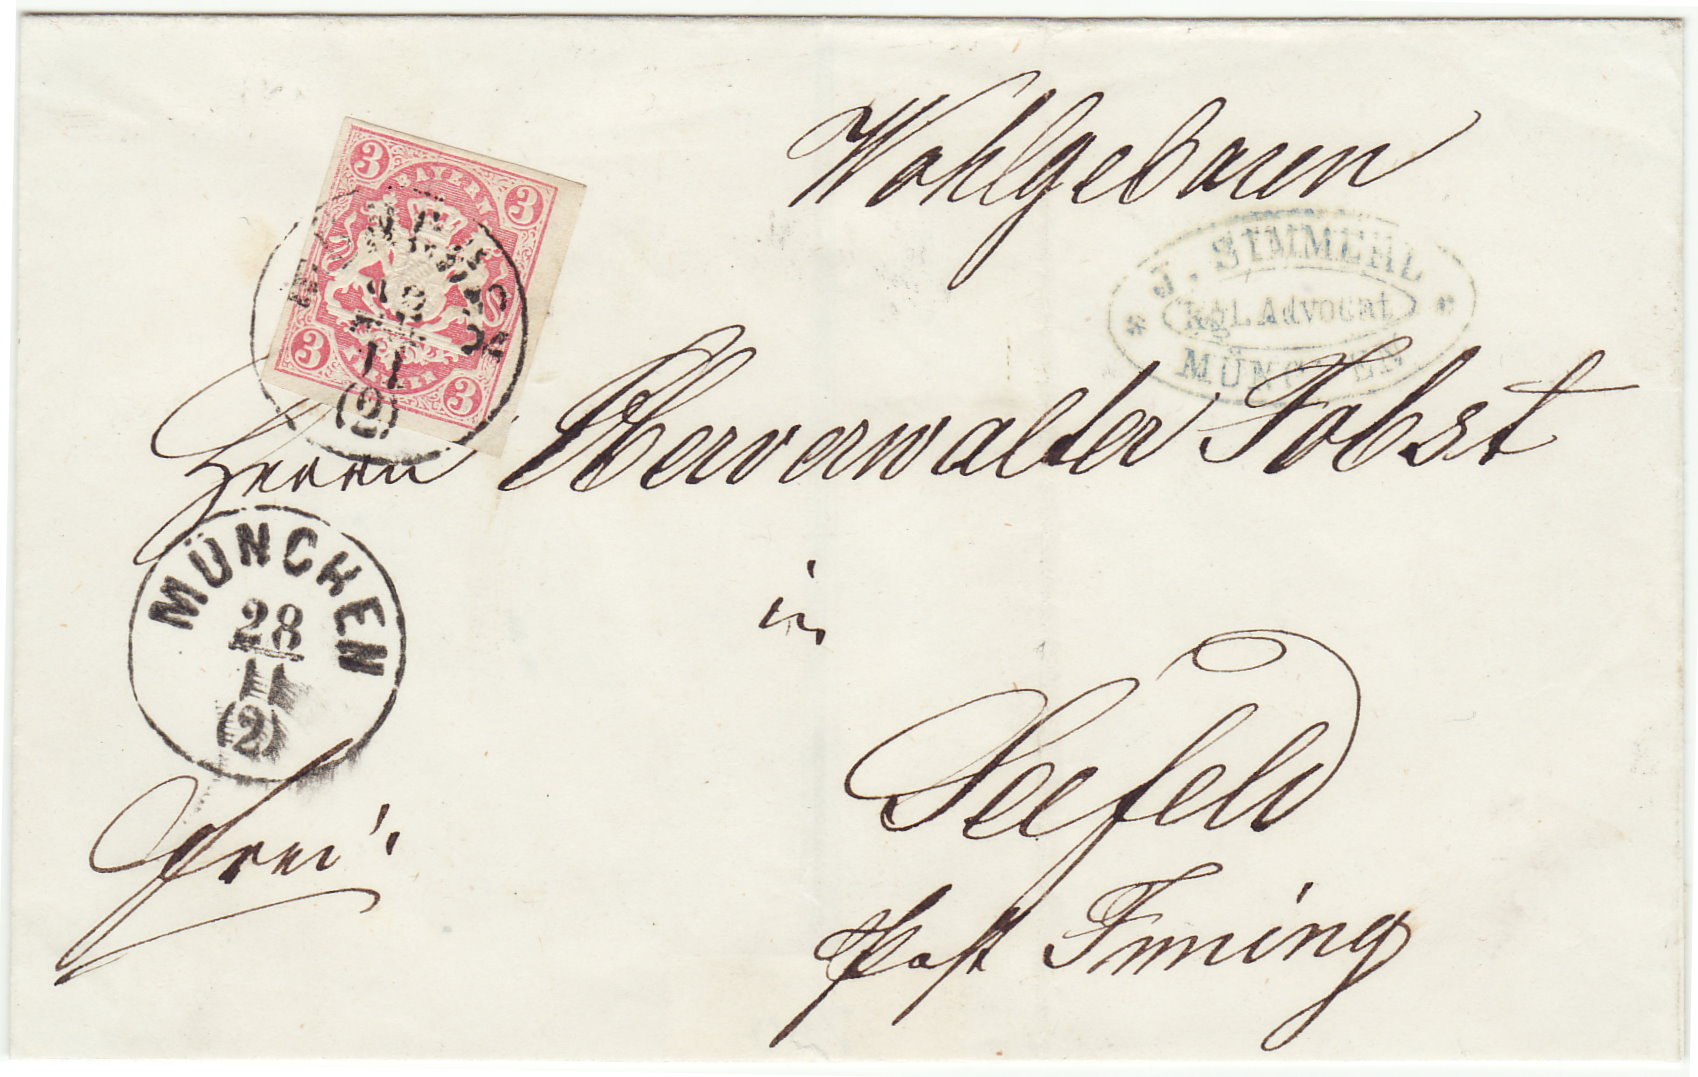 Wohlgeboren
J. SIMMERL
Kgl. Advocat
MÜNCHEN
3 BAYERN 3
3 3
MÜNCHEN
28
11
(2)
Herrn Oberverwalter Jobst
in
MÜNCHEN
28
11
(2)
Seefeld
frei
Post Inning